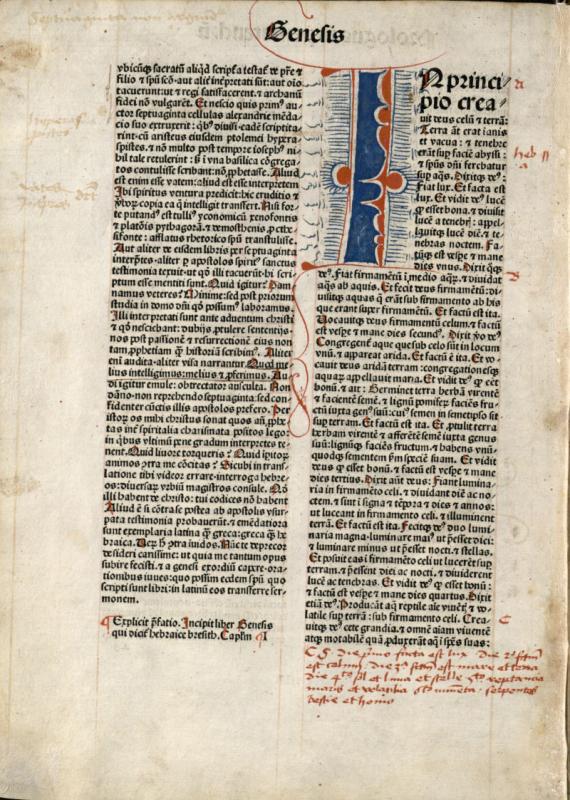 Genesis
vbicūqꝫ sacratū aliqd scriptꝭa testat᷑ ve pr̄e ⁊
filio ⁊ spū scō·aut alit᷑ inꝭpretati sūt:aut oīo
tacuerunt:ut ⁊ regi satisfacerent·⁊ archanū
fidei nō vulgarēt. Et nescio quis primꝰ au⸗
ctor septuaginta cellulas alexandrie mēda⸗
cio suo extruxerit:
rint·cū aristeus eiusdem ptolemei
spistes·⁊ nō multo post tempore iosephꝰ ni⸗
hil tale retulerint:sꝫ ī vna basilica cōgrega⸗
tos contulisse scribant:nō ꝓphetasse. Aliud
est enim esse vatem:aliud est esse interpretem
Ibi spiritus ventura predicit:hic eruditio ⁊
vꝰborꝫ copia ea q̄ intelligit transfert. Nisi for⸗
te putandꝰ est tulliꝰ yconomicū xenofontis
⁊ platōis pythagorā·⁊ demosthenis ꝓ cthe
sifonte:afflatus rhetorico spū transtulisse.
Aut aliter de eisdem libris per septuaginta
interꝑtes·aliter ꝑ apostolos spirit᷑ sanctus
testimonia texuit·ut qd̄ illi tacuerūt·hi scri⸗
ptum esse mentiti sunt. Quid igitur? Dam⸗
namus veteres? Minime:sed post priorum
studia in domo dn̄i qd̄ possumꝰ laboramus.
Illi interpretati sunt ante aduentum christi
⁊ qd̄ nescierunt:dubijs ꝓtulere sententijs·
nos post passionē ⁊ resurrectionē eius non
tam ꝓphetiam ꝙ̄ historiā scribimꝰ. Aliter
eni audita·aliter visa narrantur. Quod me⸗
lius intelligimus:melius ⁊ ꝓferimus. Au⸗
di igitur emule:obtrectator ausculta. Non
dāno·non reprehendo septuaginta:sed con⸗
fidenter cūctis illis apostolos prefero. Per
istorꝫ os mihi christus sonat quos an̄ ꝓphe⸗
tas inꝭ spiritalia charismata positos lego:
in qbꝰ vltimū pene gradum interpretes te⸗
nent. Quid liuore torqueris? Quid īpitorꝫ
animos ꝯtra me cōcitas? Sicubi in trans⸗
latione tibi videor errare·interroga hebre⸗
os:diuersarꝫ vrbiū magistros consule. Qd̄
illi habent de christo:tui codices nō habent
Aliud ē si cōtra se postea ab apostolis vsur⸗
pata testimonia probauerūt·⁊ emēdatiora
sunt exemplaria latina ꝙ̄ greca:greca ꝙ̄ he
braica. Veꝝ hec ꝯtra īuidos. Nūc te deprecor
desideri carissime:ut quia me tantum opus
subire fecisti·⁊ a genesi exordiū capere·ora⸗
tionibus iuues:quo possim eodem spū quo
scripti sunt libri:in latinū eos transferre ser⸗
monem.
¶ Explicit p̄fatio. Incipit liber Genesis
qui diciꞇ᷑ hebraice bresith. Capꝉm ¶ I
IN princi⸗
pio crea⸗
uit deus celū ⁊ terrā:
Terra aūt erat inanis
et vacua:⁊ tenebre
erāt sup faciē abyssi:
⁊ spūs dn̄i ferebatur
sup aqs. Dixitqꝫ deꝰ:
Fiat lux. Et facta est
lux. Et vidit deꝰ lucē
ꝙ esset bona·⁊ diuisit
lucē a tenebris:appel⸗
lauitqꝫ lucē diē·⁊ te⸗
nebras noctem. Fa⸗
ctūqꝫ est vespe ⁊ mane
dies vnus. Dixit qꝫ
deꝰ. Fiat firmamētū ī medio aqꝝ·⁊ diuidat
aqs ab aquis. Et fecit deus firmamētū:di⸗
uisitqꝫ aquas q̄ erāt sub firmamento ab his
que erant super firmamētū. Et factū est ita.
Vocauitqꝫ deus firmamentū celum·⁊ factū
est vespe ⁊ mane dies secundꝰ. Dixit vo deꝰ
Congregent᷑ aque que sub celo sūt in locum
vnū·⁊ appareat arida. Et factū ē ita. Et vo⸗
cauit deus aridā terram:congregationesqꝫ
aquaꝝ appellauit maria. Et vidit deꝰ ꝙ eēt
bonū·⁊ ait:Germinet terra herbā virentē
⁊ facientē semē·⁊ lignū pomiferꝫ faciēs fru⸗
ctū iuxta genꝰ suū:cuiꝰ semen in semetipso sit
sup terram. Et factū est ita. Et ꝓtulit terra
herbam virentē ⁊ afferētē semē iuxta genus
suū:lignūqꝫ faciēs fructum·⁊ habens vnū⸗
quodqꝫ sementem ẜm speciē suam. Et vidit
deus ꝙ esset bonū·⁊ factū est vespe ⁊ mane
dies tertius. Dixit aūt deus:Fiant lumina⸗
ria in firmamēto celi·⁊ diuidant diē ac no⸗
ctem·⁊ sint ī signa ⁊ tēpora·⁊ dies ⁊ annos:
ut luceant in firmamento celi·⁊ illuminent
terrā. Et factū est ita. Fecitqꝫ deꝰ duo lumi⸗
naria magna·luminare maiꝰ ut p̄esset diei:
⁊ luminare minus ut p̄esset nocti:⁊ stellas.
Et posuit eas ī firmamēto celi ut lucerēt sup
terram·⁊ p̄essent diei ac nocti·⁊ diuiderent
lucē ac tenebras. Et vidit deꝰ ꝙ esset bonū:
⁊ factū est vespe ⁊ mane dies quartus. Dixit
etiā deꝰ. Producāt aq̄ reptile aīe viuētꝭ·⁊ vo⸗
latile sup terrā:sub firmamento celi. Crea⸗
uitqꝫ deꝰ cete grandia·⁊ omnē aīam viuentē
atqꝫ motabilē quā ꝓduxerāt aq̄ ī spēs suas:
B
C
die primo facta est lux die
est celum die est mare et terra
die sol et luna et stelle
maris et volatilia serpentes
bestie et homo